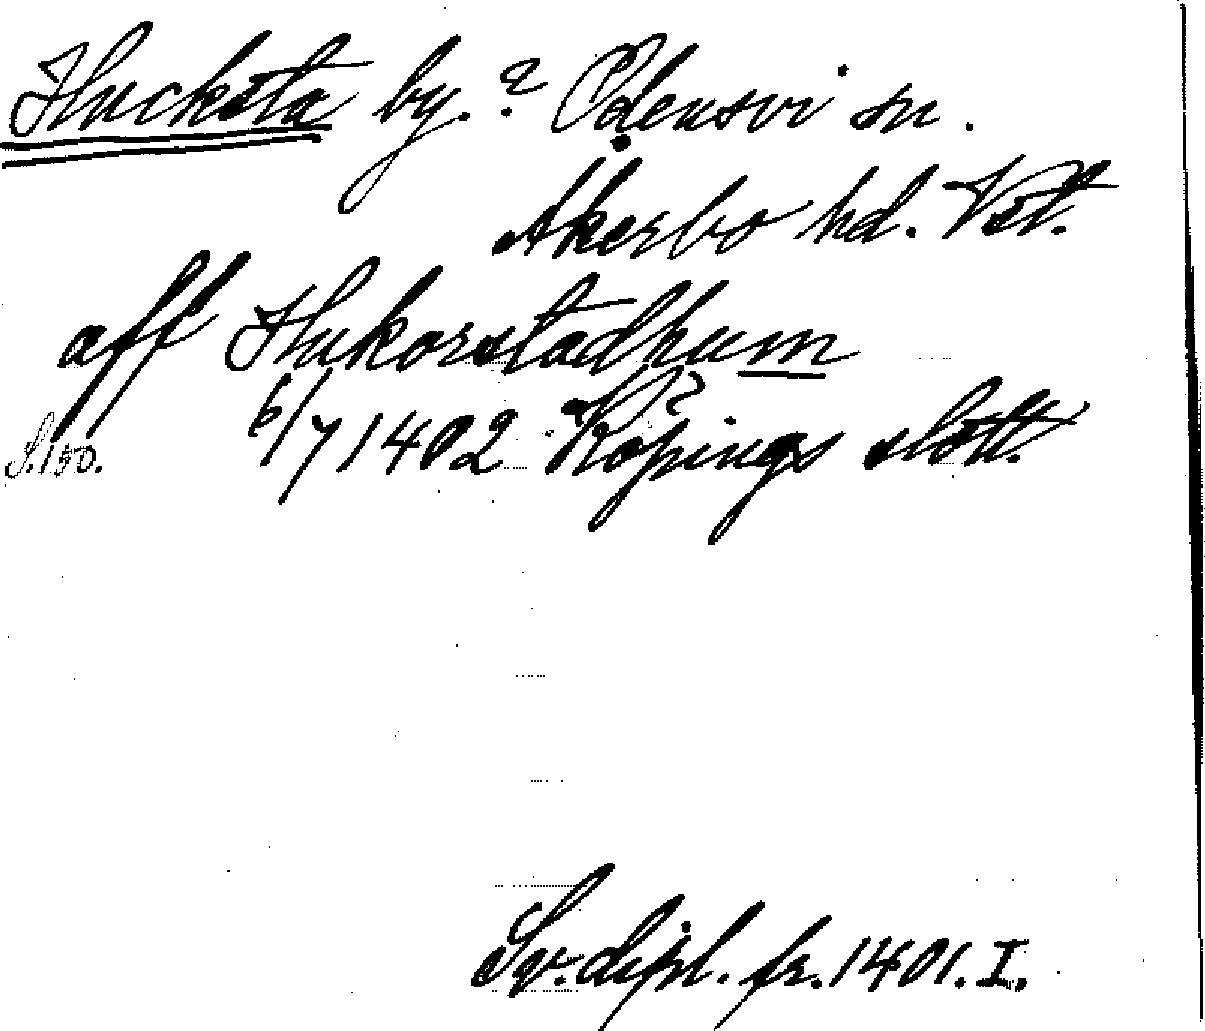 Hucksta by. ? Odensvi sn.
Åkerbo hd. Vstl.
aff Hukorstadhum
S. 150. 6/7 1402 Köpings slott.
Sv. dipl. fr. 1401. I.